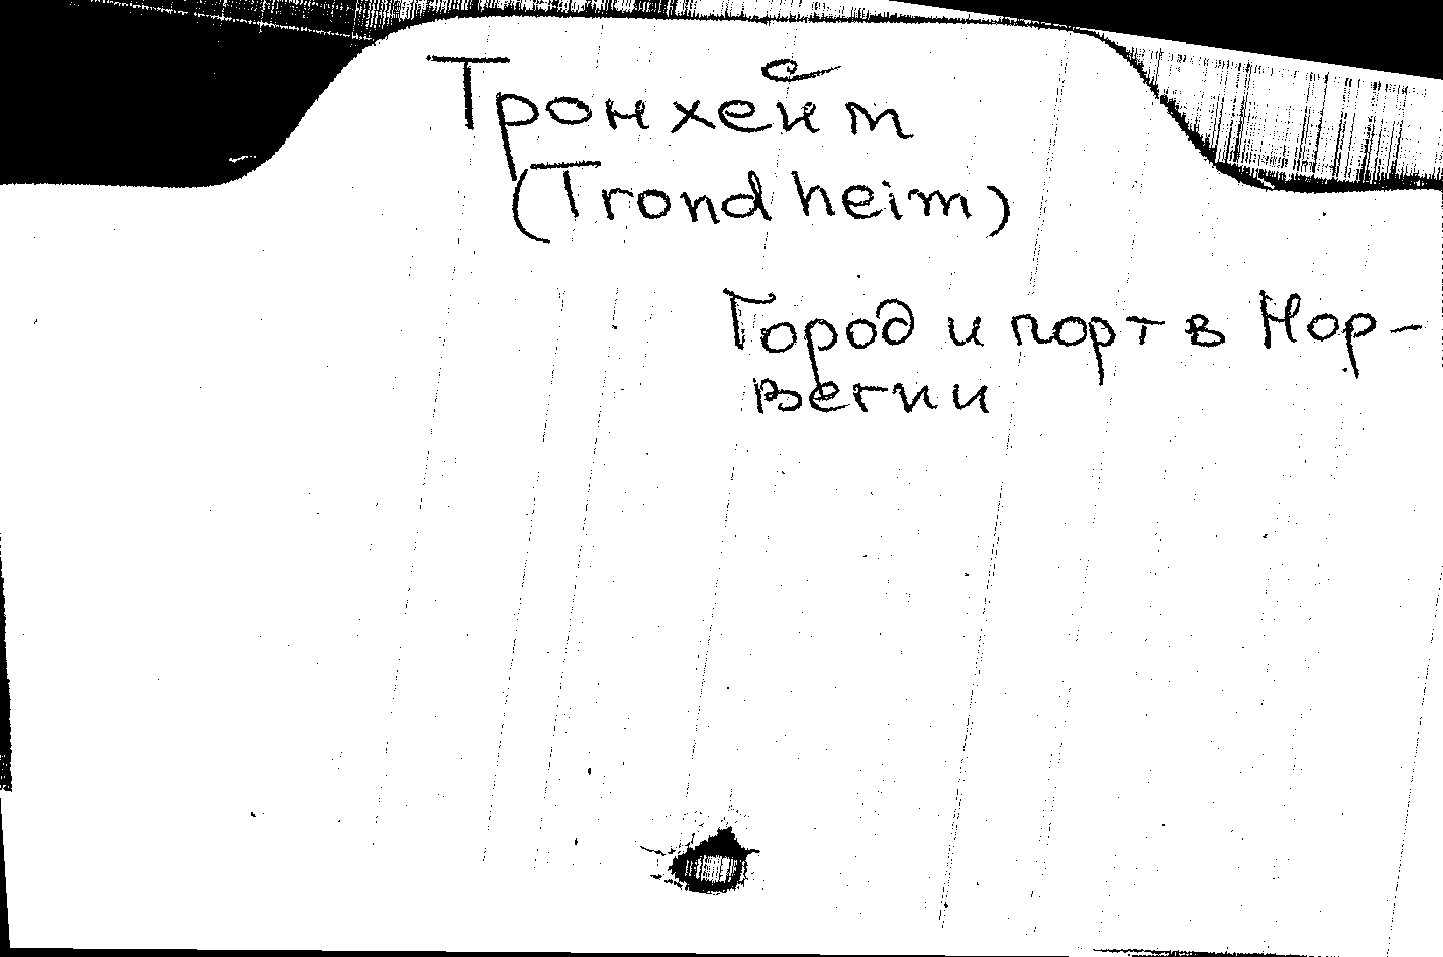 Тронхейм
(Trondheim)
Город и порт в Нор-
вегии